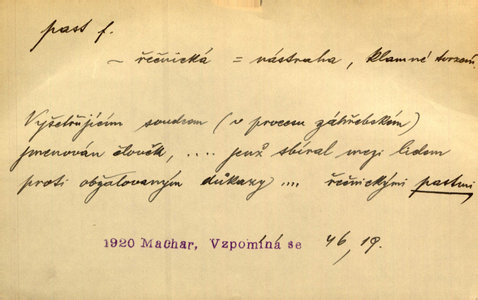 past f.
~ řečnická = nástraha, klamné tvrzení
Vyšetřujícím soudcem (v procesu záhřebském)
jmenován člověk, .... jenž sbíral mezi lidem
proti obžalovaným důkazy .... řečnickými pastmi
1920 Machar, Vzpomíná se 46, 19.